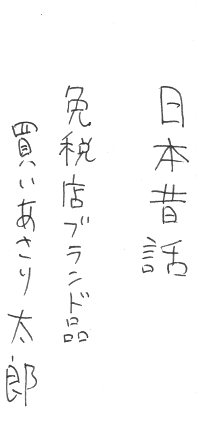 日本昔話
免税店ブランド品
買いあさり太郎